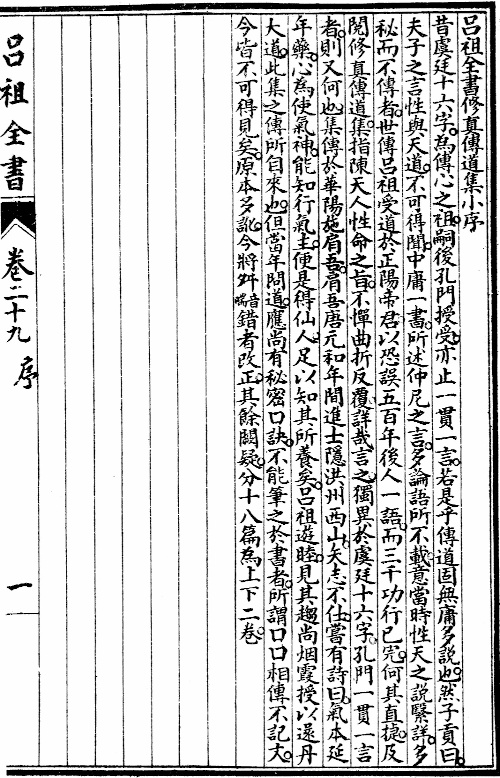 呂祖全書修真傳道集小序
昔虞廷十六字。為傳心之祖。嗣後孔門授受。亦止一貫一言。若是乎傳道固無庸多說也。然子貢曰。
夫子之言性與天道。不可得聞。中庸一書。所述仲尼之言。多論語所不載。意當時性天之說繄詳。多
秘而不傳者。世傳呂祖受道於正陽帝君。以恐誤五百年後人一語。而三千功行已完。何其直捷。及
閱修真傳道集。指陳天人性命之旨。不憚曲折反覆詳哉言之。獨異於虞廷十六字。孔門一貫一言
者。則又何也。集傳於華陽施肩吾。肩吾唐元和年間進士。隱洪州西山。矢志不仕。嘗有詩曰。氣本延
年藥。心為使氣神。能知行氣主。便是得仙人。足以知其所養矣。呂祖遊睦。見其趨尚烟霞。授以還丹
大道。此集之傳所自來也。但當年問道。應尚有秘密口訣。不能筆之於書者。所謂口口相傳不記文。
今皆不可得見矣。原本多訛。今將舛錯者改正。其餘闕疑。分十八篇為上下二卷。
呂祖全書
卷二十九 序
一